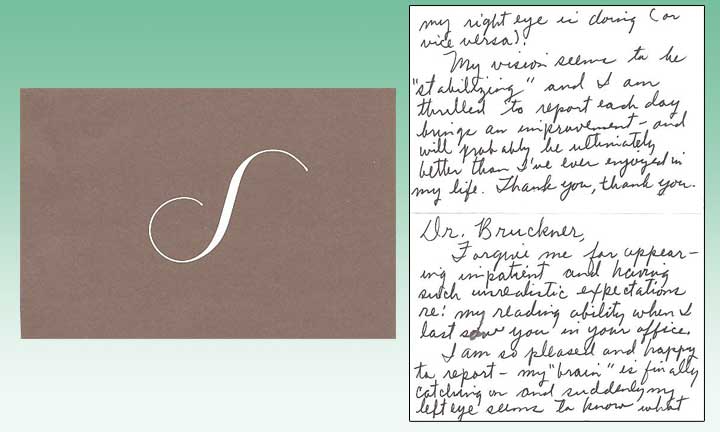 S
my right eye is doing (or
vice versa).
My vision seems to be
"stabilizing" and I am
thrilled to report each day
brings an improvement - and
will probably be ultimately
better than I've ever enjoyed in
my life. Thank you, thank you.
Dr. Bruckner,
Forgive me for appear-
ing impatient and having
such unrealistic expectations
re: my reading ability when I
last saw you in your office.
I am so pleased and happy
to report - my "brain" is finally
catching on and suddenly my
left eye seems to know what